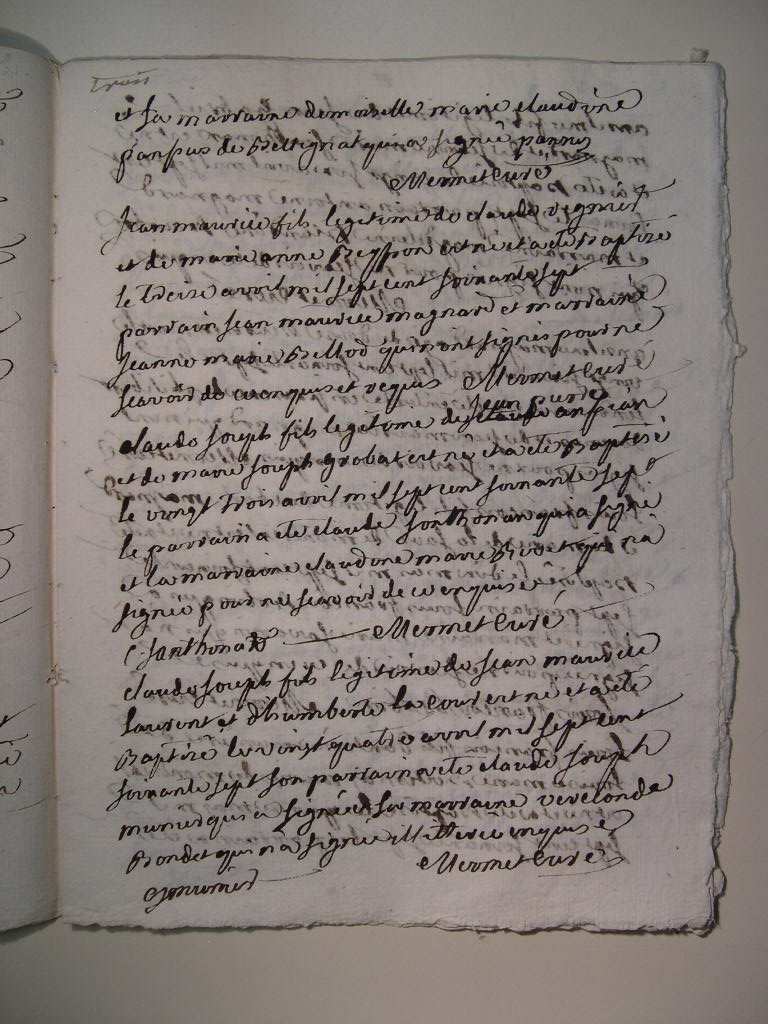 trois
et sa marraine demoiselle marie claudine
panpas de Beltignat qui a signée pannus
Mermet Curé
Jean maurice fils legitime de claude regnier
et de marie anne Reyffon est né et a ete Baptizé
le treize avril mil sept cent soixante sept
parrain Jean maurice magnard et marraine
Jeanne marie Bellod qui nont signés pour ne
scavoir de ce enquis et requis Mermet Curé
claude Joseph fils legitime de
et de marie Joseph grobat est né et a ete Baptizé
le vingt trois avril mil sept cent soixante sept
le parrain a ete claude Janthonan qui a signé
et la marraine claudine marie Bivet qui na
signée pour ne scavoir de ce enquise
C Janthonat Mermet Curé
claude Joseph fils legitime de Jean maurice
laurent et d'humberte la Cour est né et a ete
Baptizé le vingt quatre avril mil sept cent
soixante sept son parrain a ete claude Joseph
munier qui a signée sa marraine
Bondet qui n'a signée illiteree enquise
Mermet Curé
Jmunier